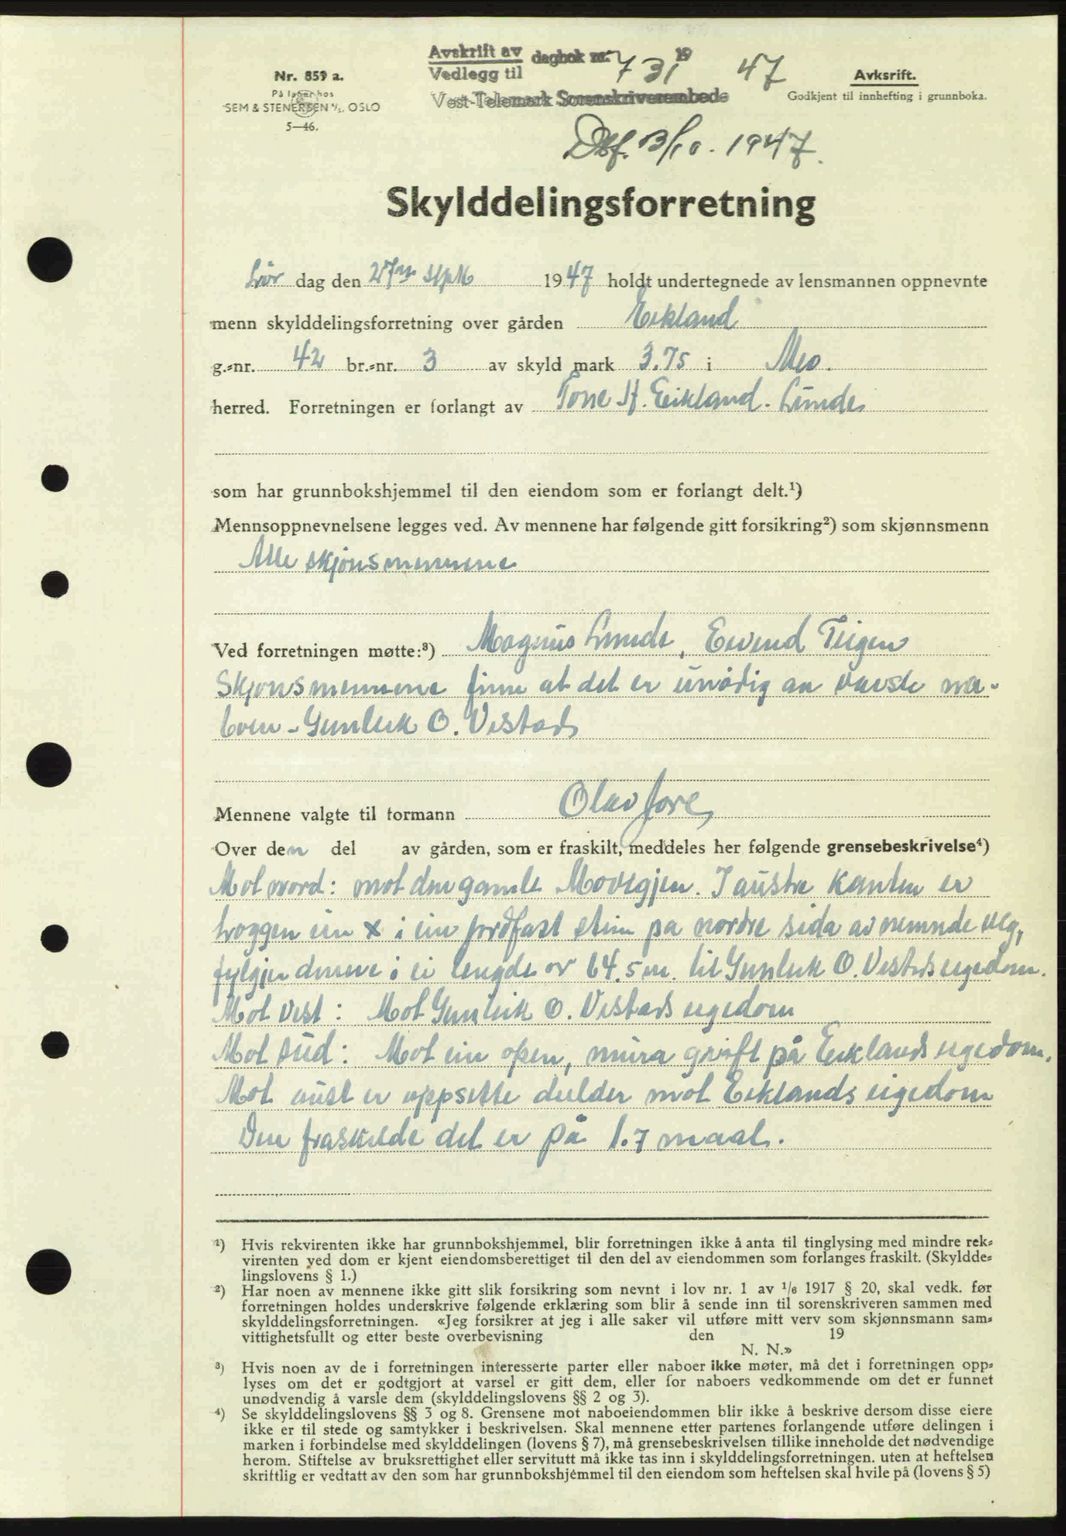 Avskrift av dagbok nr. 731 19 47
Vedlegg til
Vest-Telemark Sorenskriverembede
Nr. 859 a.
På lager hos
SEM & STENERSEN A/S, OSLO
5—46.
Avksrift.
Godkjent til innhefting i grunnboka.
Dbf. 3/10. 1947.
Skylddelingsforretning
Lør dag den 27de sept 1947 holdt undertegnede av lensmannen oppnevnte
menn skylddelingsforretning over gården Eikland
g.-nr. 42 br.-nr. 3 av skyld mark 3.75 i Mo.
herred. Forretningen er forlangt av Tone H. Eikland. Lunde
som har grunnbokshjemmel til den eiendom som er forlangt delt.¹)
Mennsoppnevnelsene legges ved. Av mennene har følgende gitt forsikring²) som skjønnsmenn
Alle skjønsmennene
Ved forretningen møtte:³) Magnus Lunde, Eivind Teigen
Skjønsmennene finn at det er unødig aa varsle na-
boen - Gunleik O. Vestad
Mennene valgte til formann Olav Jore,
Over den del av gården, som er fraskilt, meddeles her følgende grensebeskrivelse⁴)
Mot nord: mot den gamle Movegjen. I austre kanten er
hoggen ein x i ein jordfast stein på nordre sida av nemnde veg,
fylgjer denne i ei lengde av 64.5 m. til Gunleik O. Vestads eigedom.
Mot vest: Mot Gunleik O. Vestads eigedom
Mot sud: Mot ein open, mura grøft på Eiklands eigedom.
Mot aust er oppsette deilder mot Eiklands eigedom
Den fraskilde del er på 1.7 maal.
¹) Hvis rekvirenten ikke har grunnbokshjemmel, blir forretningen ikke å anta til tinglysing med mindre rek-
virenten ved dom er kjent eiendomsberettiget til den del av eiendommen som forlanges fraskilt. (Skyldde-
lingslovens § 1.)
²) Har noen av mennene ikke gitt slik forsikring som nevnt i lov nr. 1 av 1/6 1917 § 20, skal vedk. før
forretningen holdes underskrive følgende erklæring som blir å sende inn til sorenskriveren sammen med
skylddelingsforretningen. «Jeg forsikrer at jeg i alle saker vil utføre mitt verv som skjønnsmann sam-
vittighetsfullt og etter beste overbevisning den 19
N. N.»
³) Hvis noen av de i forretningen interesserte parter eller naboer ikke møter, må det i forretningen opp-
lyses om det er godtgjort at varsel er gitt dem, eller for naboers vedkommende om det er funnet
unødvendig å varsle dem (skylddelingslovens §§ 2 og 3).
⁴) Se skylddelingslovens §§ 3 og 8. Grensene mot naboeiendommen blir ikke å beskrive dersom disse eiere
ikke er til stede og samtykker i beskrivelsen. Skal mennene etter partenes forlangende utføre delingen i
marken i forbindelse med skylddelingen (lovens § 7), må grensebeskrivelsen tillike inneholde det nødvendige
herom. Stiftelse av bruksrettighet eller servitutt må ikke tas inn i skylddelingsforretningen. uten at heftelsen
skriftlig er vedtatt av den som har grunnbokshjemmel til den eiendom som heftelsen skal hvile på (lovens § 5)